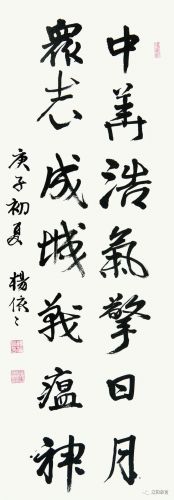 中華浩氣擎日月
衆志成城戰瘟神
庚子初夏 楊依〻